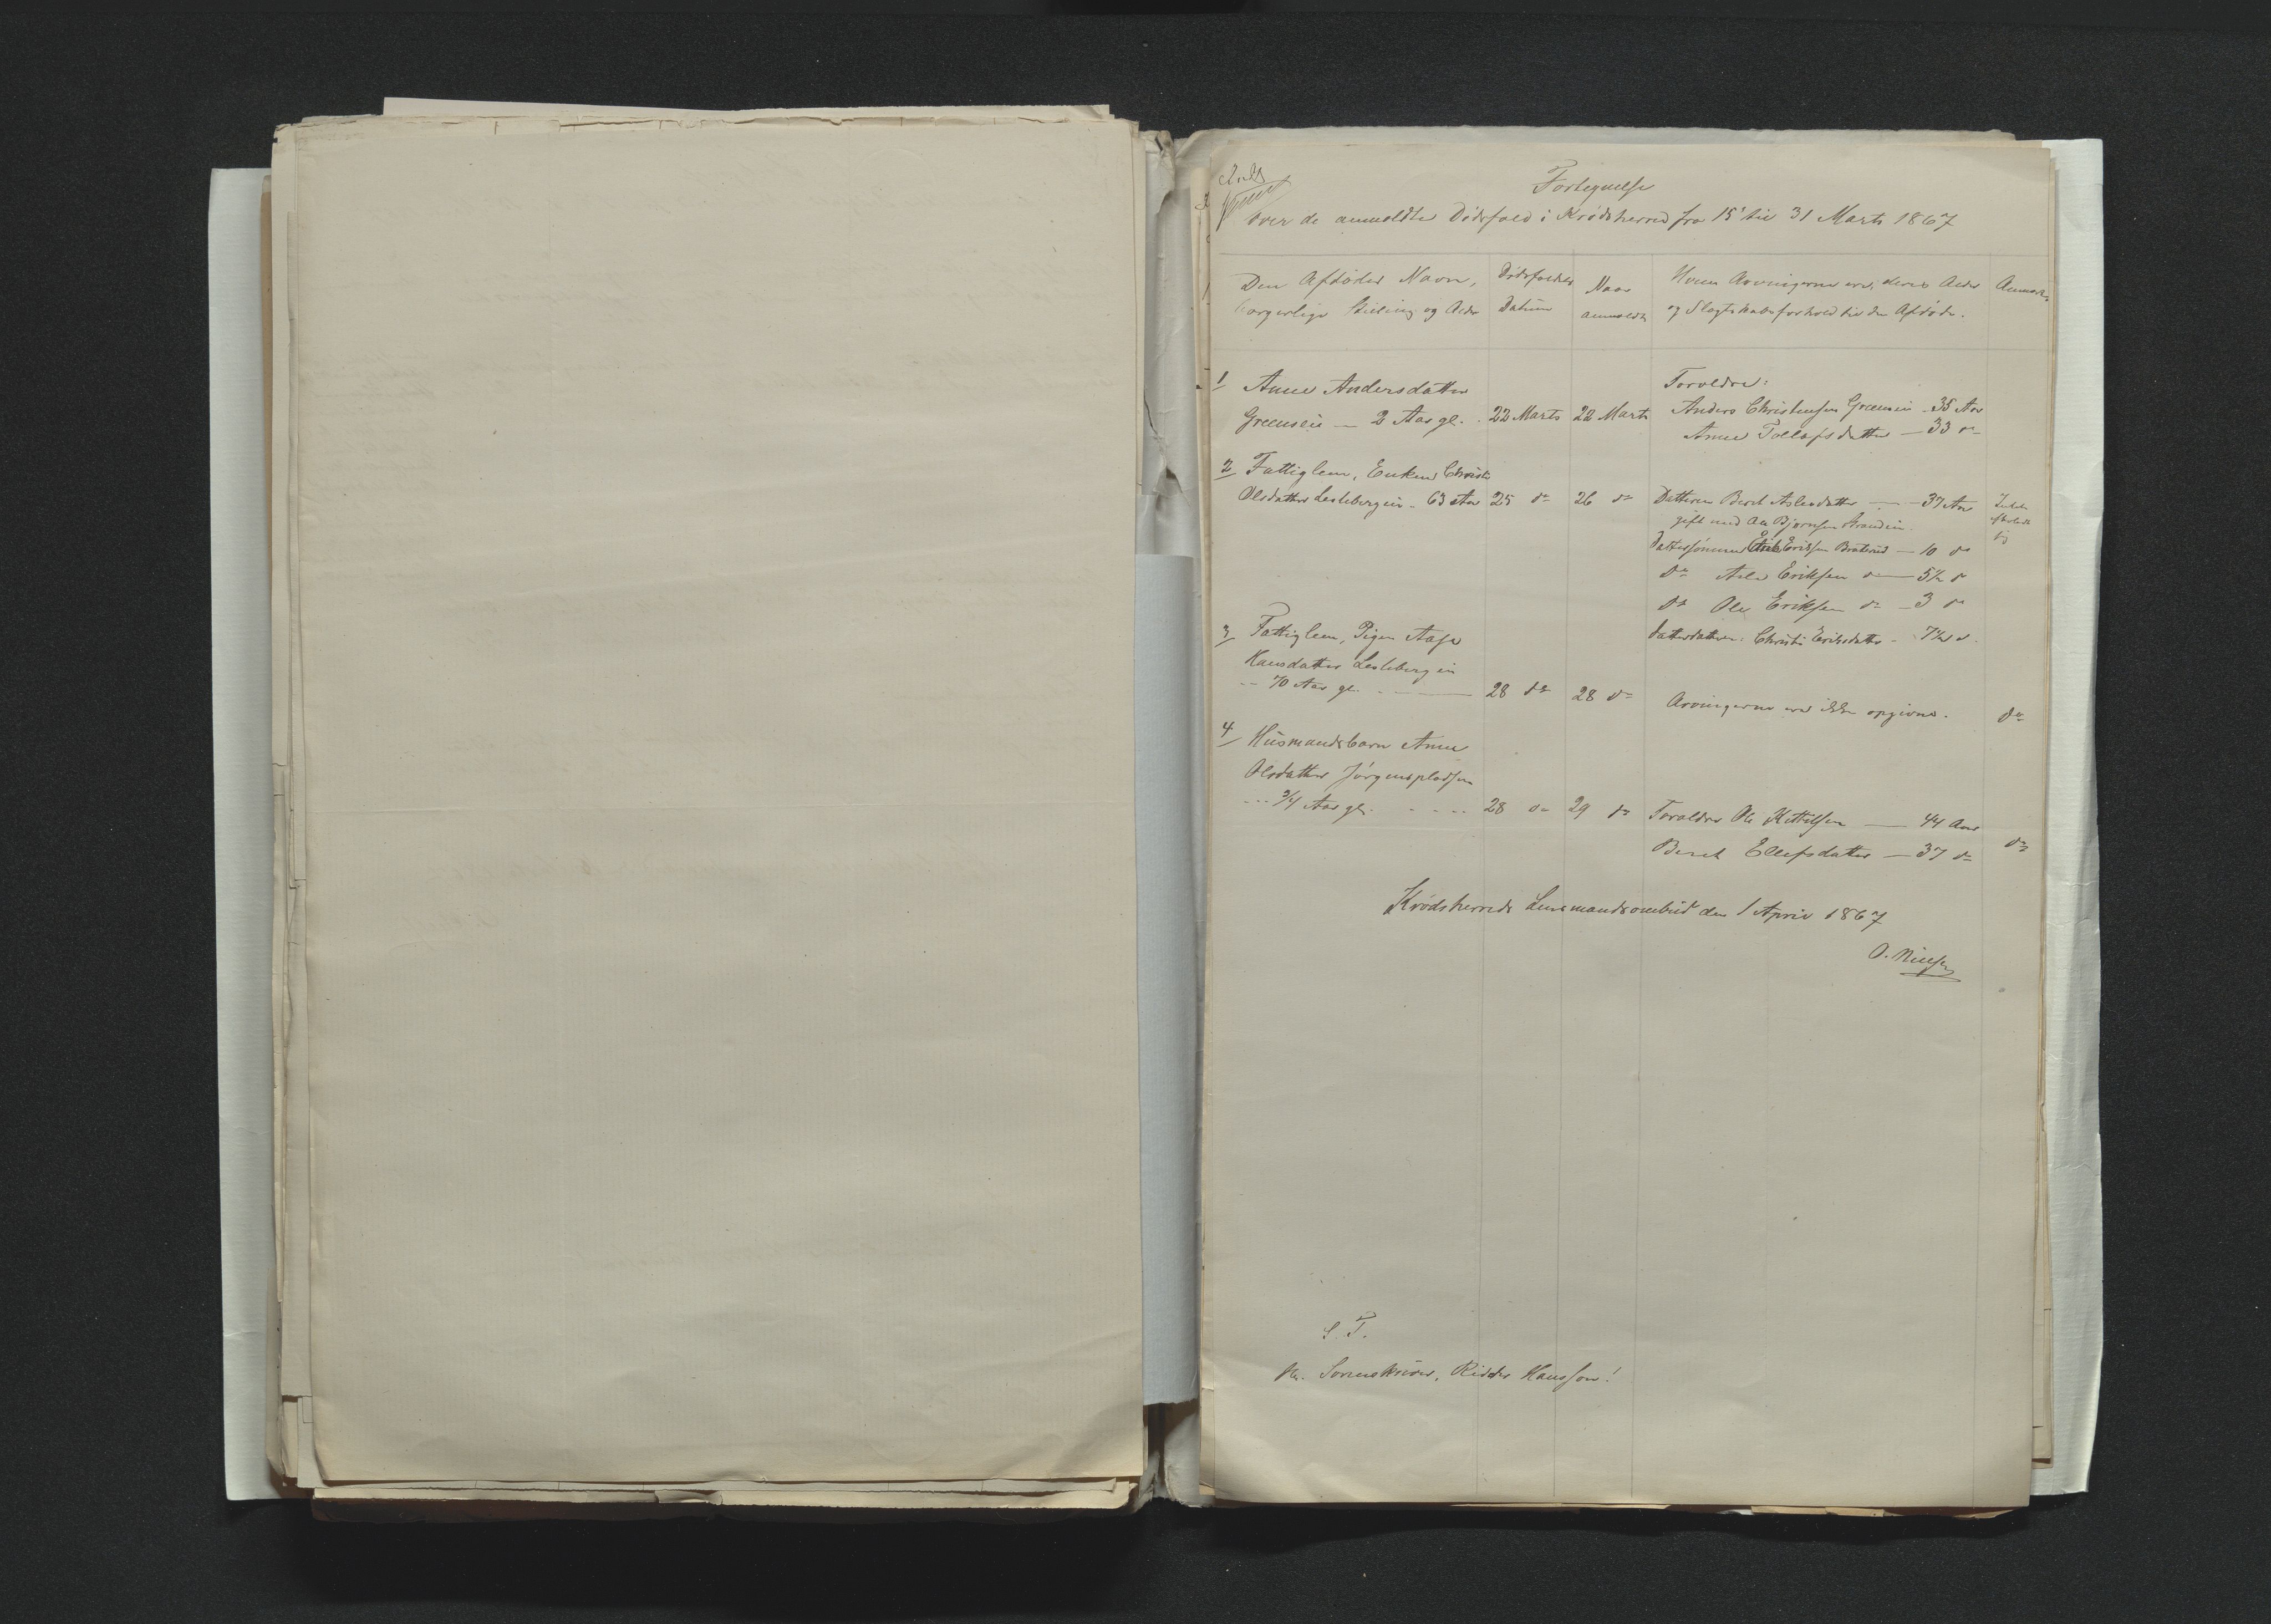 Fortegnelse
over de anmeldte Dödsfald i Krödsherred fra 15de til 31 Marts 1867
Den Afdödes Navn,
borgerlige Stilling og Alder
Dödsfaldets
Datum
Naar
anmeldt
Hvem Arvingerne ere, deres Alder
og Slægtskabsforhold til den Afdöde.
Anmærk.
1 Anne Andersdatter
Greenseie — 2 Aar gl. 22 Marts 22 Marts
Foreldre:
Anders Christensen Greenseie 35 Aar
Anne Tollefsdatter — 33 do
2 Fattiglem, Enken Christi
Olsdatter Leslebergeie - 63 Aar 25 do 26 do
Datteren Beret Aslesdatter — 37 Aar
gift med Ole Björnsen Strandeie
Dattersönnen Erik Eriksen Bråterud — 10 do
do Asle Eriksen do — 5½ do
do Ole Eriksen do — 3 do
Datterdatter: Christi Eriksdatter - 7½ do
Intet
efterladt
sig
3 Fattiglem, Pigen Aase
Hansdatter Leslebergeie
— 70 Aar gl. 28 do 28 do Arvingerne ere ikke opgivne. do
4 Husmandsbarn Anne
Olsdatter Jörgensplassen
¾ Aar gl. 28 do 29 do Foreldre Ole Kittilsen — 44 Aar
Beret Ellefsdatter — 37 do do
Krödsherreds Lensmandsombud den 1 April 1867
O. Nielsen
S. T.
Hr. Sorenskriver, Ridder Hansson!